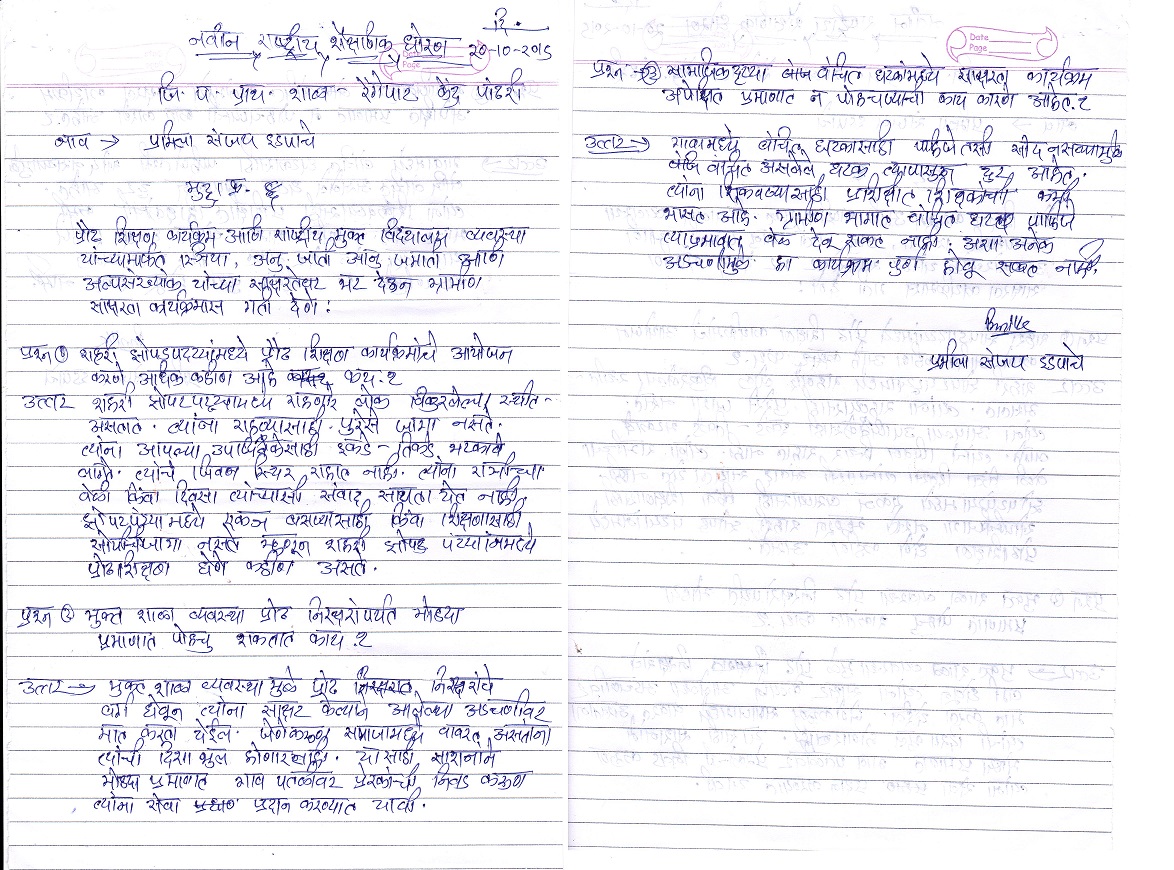 दि.
नवीन राष्ट्रीय शैक्षणिक धोरण २०-१०-२०१५
Date
Page
जि. प. प्राथ. शाळा - रेंगेपार केंद्र पांढरी
नाव → प्रमिला संजय डडपाचे
मुद्दा क्र. ६
प्रौढ शिक्षण कार्यक्रम आणि राष्ट्रीय मुक्त विद्यालय व्यवस्था
यांच्यामार्फत स्त्रिया, अनु. जाती अनु. जमाती आणि
अल्पसंख्यांक यांच्या साक्षरतेवर भर देऊन ग्रामीण
साक्षरता कार्यक्रमास गती देणे.
प्रश्न ① शहरी झोपडपट्ट्यांमध्ये प्रौढ शिक्षण कार्यक्रमाचे आयोजन
करणे अधिक कठीण आहे काय.?
उत्तर शहरी झोपटपट्यामध्ये राहणारे लोक विखुरलेल्या स्थीत-
असतात. त्यांना राहण्यासाठी पुरेसे जागा नसते.
त्यांना आपल्या उपजिविकेसाठी इकडे-तिकडे भटकावे
लागते. त्यांचे जिवन स्थिर राहात नाही. त्यांना रात्रीच्या
वेळी किंवा दिवसा त्यांच्याशी संवाद साधता येत नाही.
झोपटपट्यामध्ये एकत्र बसण्यासाठी किंवा शिक्षणासाठी
सोयीची जागा नसते म्हणून शहरी झोपड पट्यांमध्ये
प्रौढशिक्षण घेणे कठीण असते.
प्रश्न ② मुक्त शाळा व्यवस्था प्रौढ निरक्षरांपर्यंत मोठ्या
प्रमाणात पोहचु शकतात काय.?
उत्तर → मुक्त शाळा व्यवस्था मुळे प्रौढ निरक्षरांचे
वर्ग घेवून त्यांना साक्षर केल्याने आलेल्या अडचणीवर
मात करता येईल. जेणेकरुन समाजामध्ये वावरत असतांना
त्यांची दिशा भूल होणार नाही. यासाठी शासनाने
मोठ्या प्रमाणात गाव पातळीवर प्रेरकांची निवड करून
त्यांना सेवा प्रदान करण्यात यावी.
Date
Page
प्रश्न ③ सामाजिकदृष्ट्या व वंचित घटकांमध्ये साक्षरता कार्यक्रम
अपेक्षित प्रमाणात न पोहचण्याची काय कारणे आहेत.?
उत्तर → गावामध्ये वंचित घटकासाठी पाहिजे तशी सोय नसल्यामुळे
वंचित असलेले घटक त्यापासून दुर आहेत.
त्यांना शिकवण्यासाठी प्रशिक्षीत शिक्षकांची कमी
भासत आहे. ग्रामिण भागात वंचित घटक पाहिजे
त्याप्रमाणात वेळ देवू शकत नाही. अशा अनेक
अडचणीमुळे हा कार्यक्रम पुर्ण होवू शकत नाही.
प्रमिला संजय डडपाचे